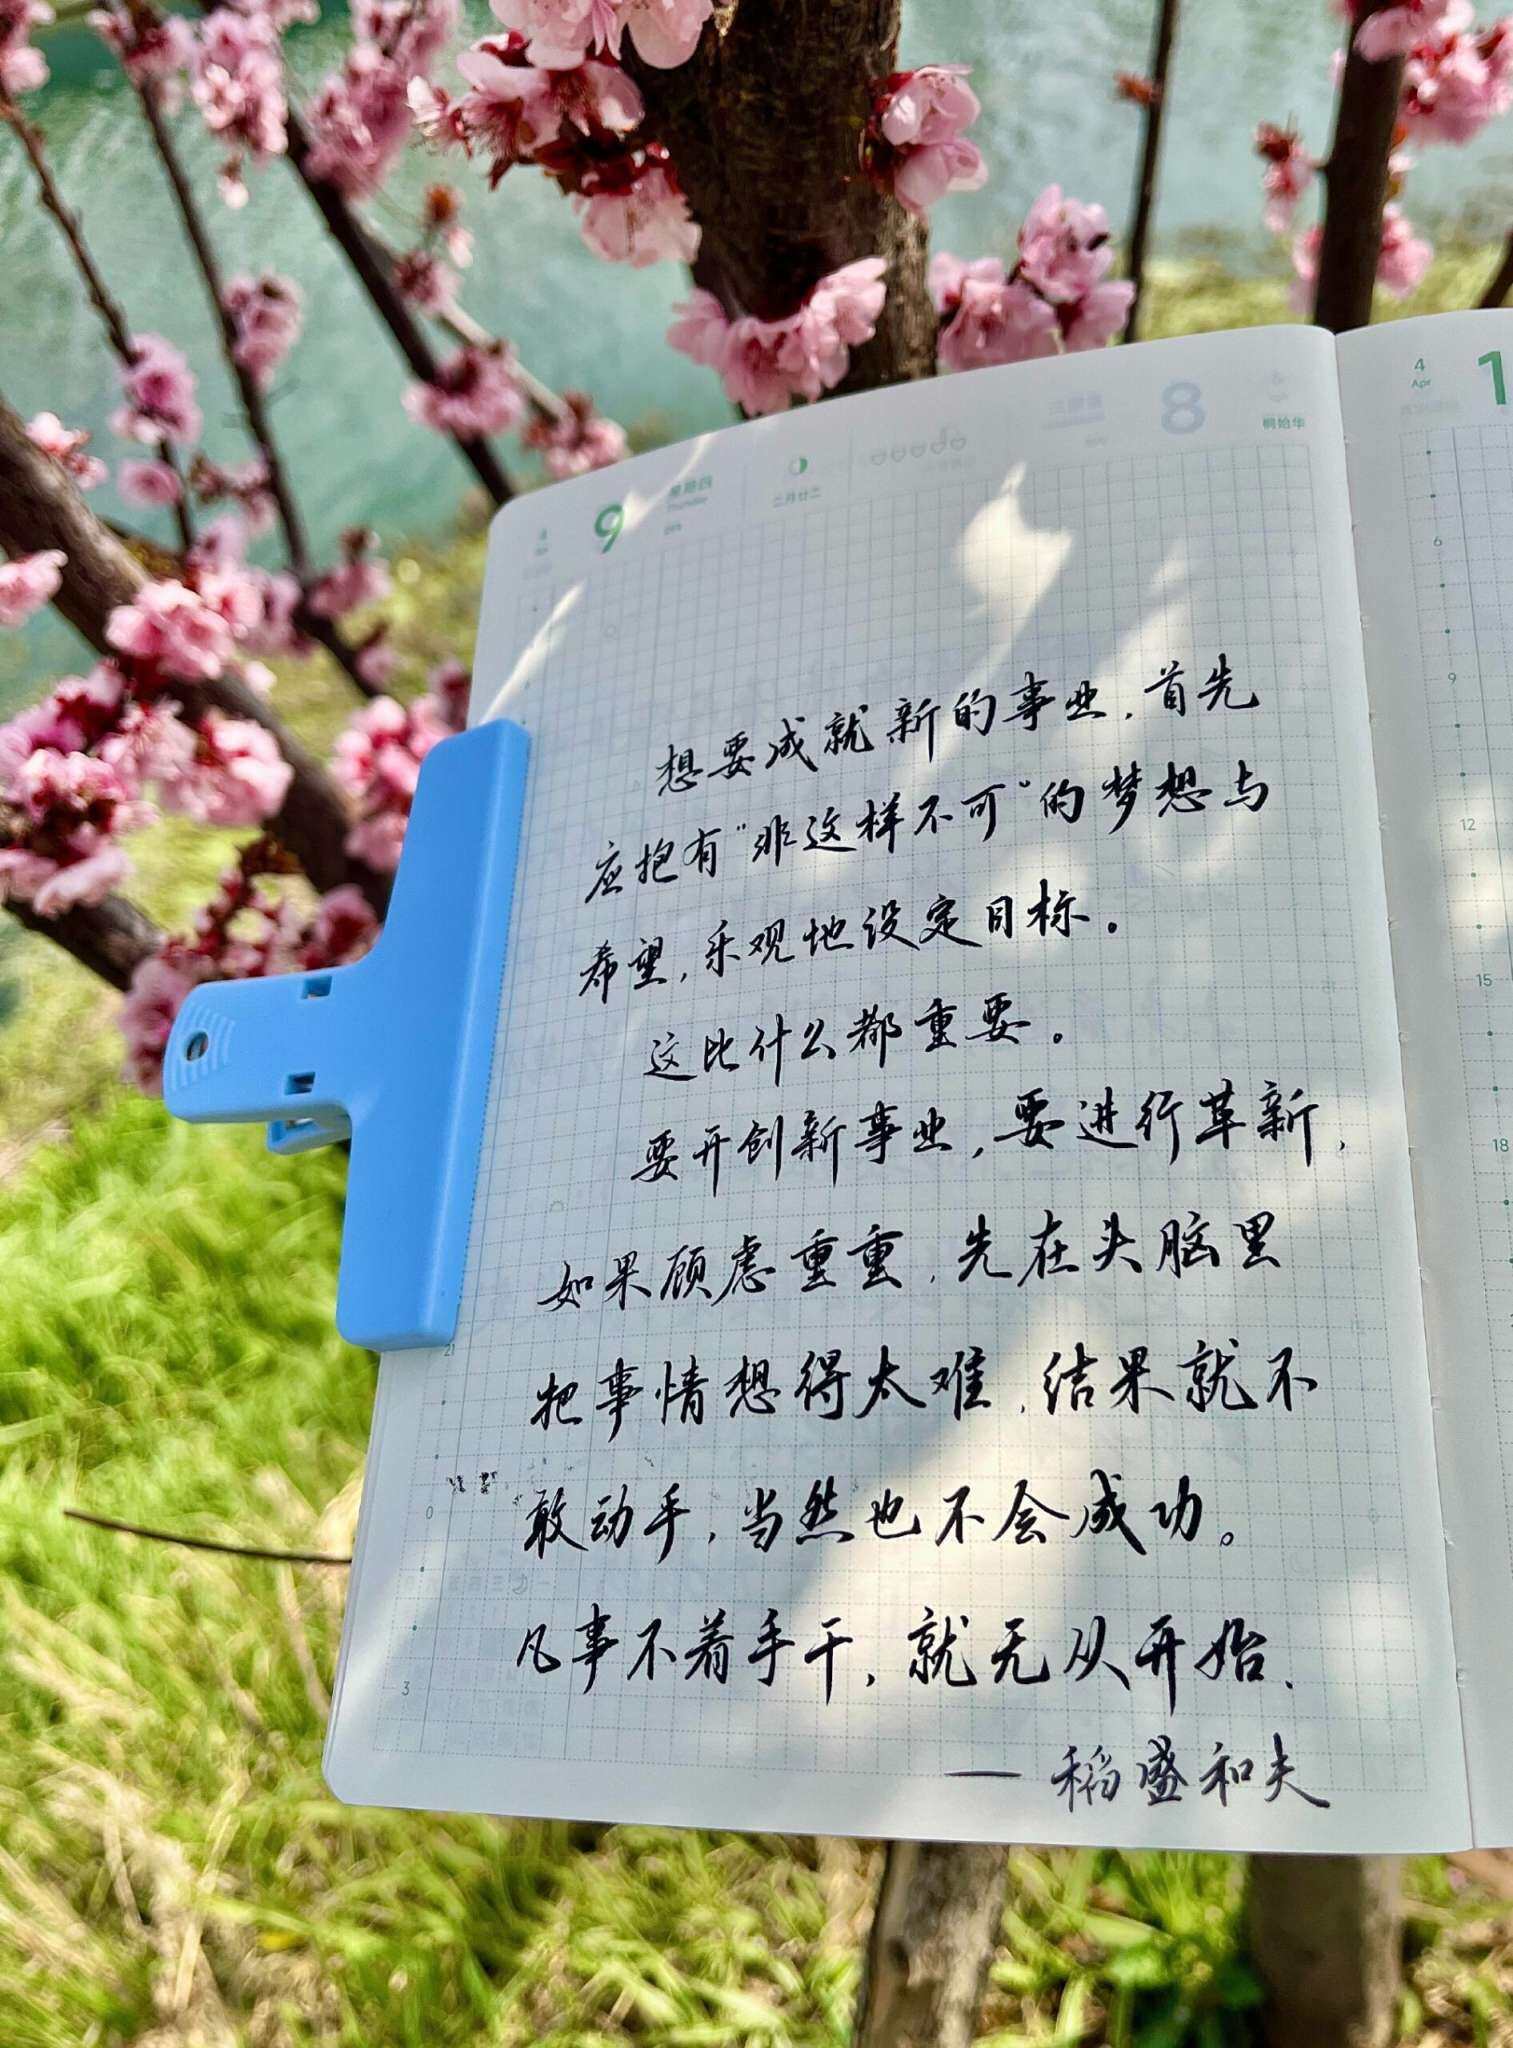 9
星期四
Thursday
二月廿二
8
桐始华
4
Apr
1
6
9
12
15
18
21
0
3
想要成就新的事业，首先
应抱有“非这样不可”的梦想与
希望，乐观地设定目标。
这比什么都重要。
要开创新事业，要进行革新，
如果顾虑重重，先在头脑里
把事情想得太难，结果就不
敢动手，当然也不会成功。
凡事不着手干，就无从开始、
— 稻盛和夫